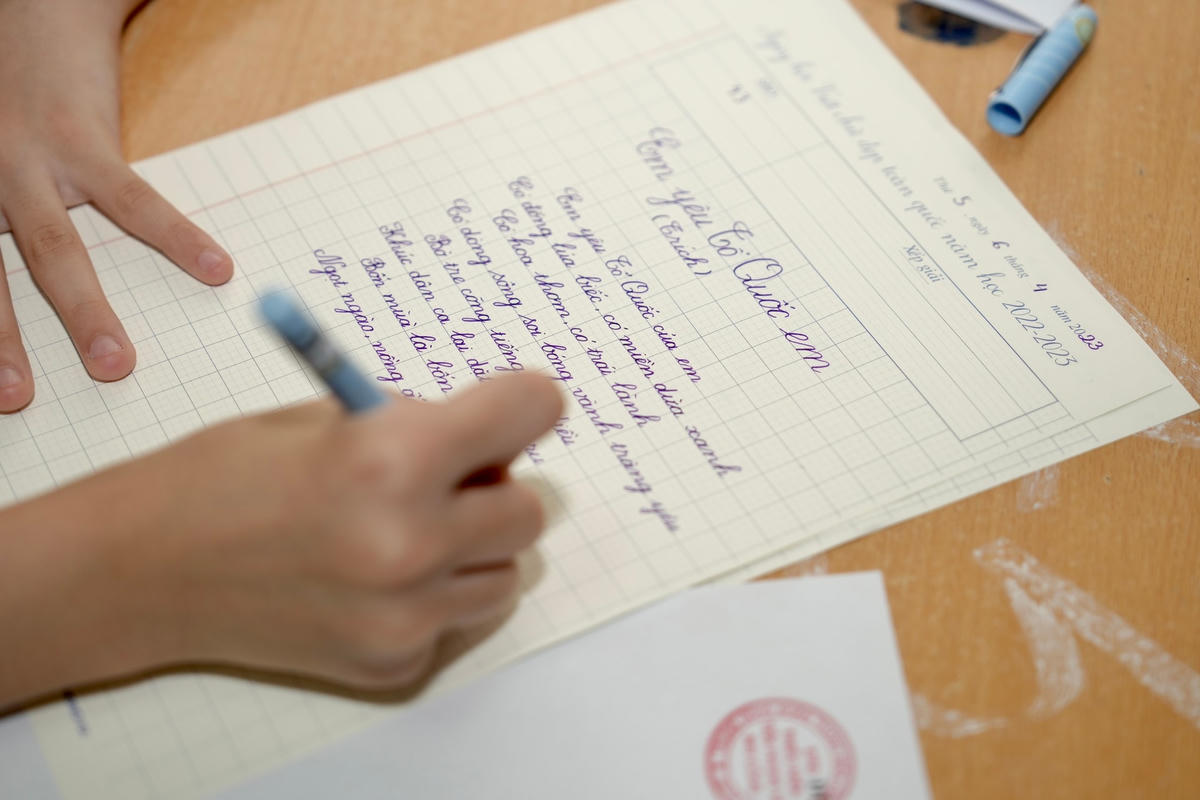 Thứ 5 ngày 6 tháng 4 năm 2023
chữ đẹp toàn quốc năm học 2022-2023
Xếp giải
Em yêu Tổ Quốc em
(Trích)
Em yêu Tổ Quốc của em
Có đồng lúa biếc, có miền dừa xanh
Có hoa thơm, có trái lành
Có dòng sông soi bóng vành trăng yêu
Bờ tre cõng tiếng
Khúc dân ca lại
Bốn mùa là bốn
Ngọt ngào, nồng